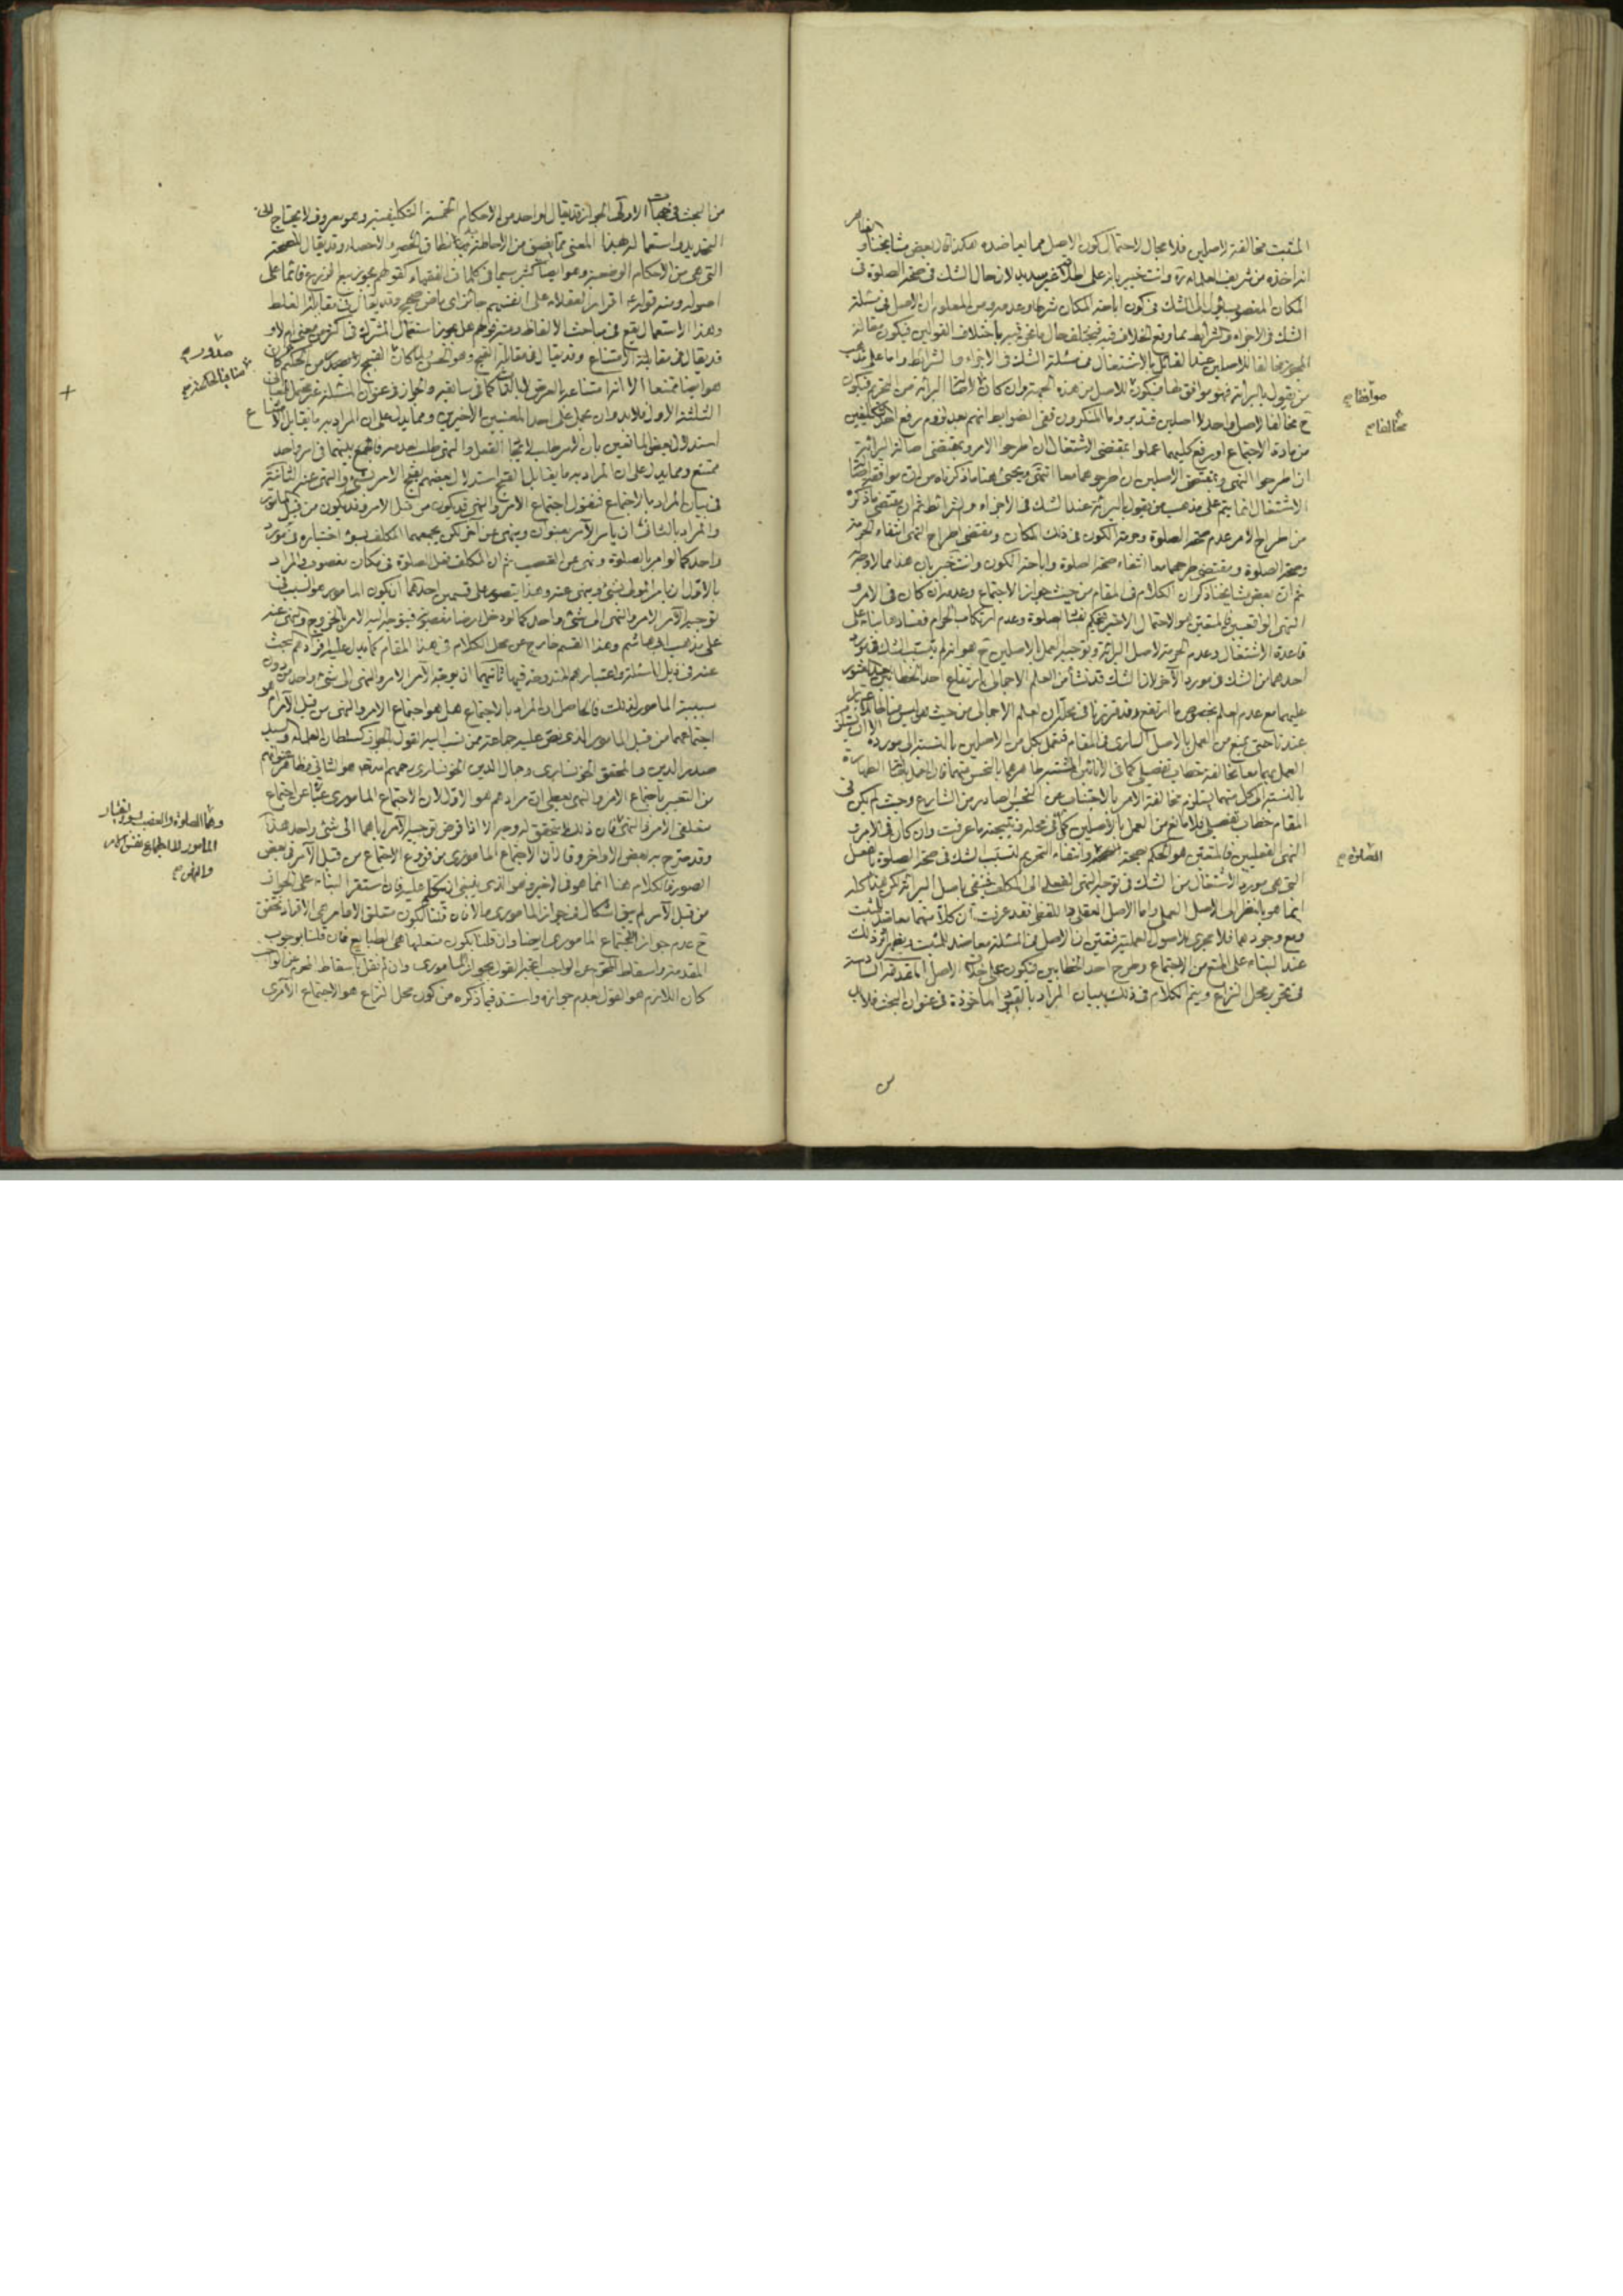 المثبت مخالفة لاصلين فلا مجال لاحتمال كون الاصل مما يعاضده هكذا قال بعض مشايخنا و
انه اخذه من شريف العلماء ره وانت خبير بان على اطلاقه غير سديد لان حال الشك فى صحة الصلوة فى
المكان المغصوب الى الشك فى كون اباحة المكان شرطا وعدمه ومن المعلوم ان الاصل فى مسئلة
الشك فى الاجزاء والشرائط مما وقع الخلاف فيه فيختلف حال ما نحن فيه باختلاف القولين فيكون مقالة
المجوز مخالفا للاصلين عند القائل بالاشتغال فى مسئلة الشك فى الاجزاء والشرائط واما على مذهب
من يقول بالبرائة فهو موافق لها فيكون الاصل من هذه الجهة وان كان البرائة من التحريم فيكون
ح مخالفا لاصل واحد لا اصلين فتدبر واما المنكرون ففى الضوابط انهم بعد لزوم رفع احد التكليفين
من مادة الاجتماع او رفع كليهما عملوا بمقتضى الاشتغال ان اطرحوا الامر وبمقتضى اصالة البرائة
ان اطرحوا النهى وبمقتضى الاصلين ان اطرحوهما معا انتهى ويجئ هنا ما ذكرناه من ان موافقة
الاشتغال انما يتم على مذهب من يقول بالبرائة عند الشك فى الاجزاء والشرائط ثم ان مقتضى ما ذكره
من اطراح الامر عدم صحة الصلوة وحرمة الكون فى ذلك المكان ومقتضى اطراح النهى انتفاء الحرمة
وصحة الصلوة ومقتضى طرحهما معا انتفاء صحة الصلوة واباحة الكون وانت خبير بان هذا مما لا وجه
ثم ان بعض مشايخنا ذكر ان الكلام فى المقام من حيث جواز الاجتماع وعدمه ان كان فى الامر و
النهى الواقعيين فالمتعين هو الاحتمال الاخير فيحكم بفساد الصلوة وعدم ارتكاب الحرام ففسادها بناء على
قاعدة الاشتغال وعدم الحرمة لاصل البرائة وتوجيه العمل بالاصلين ح هو انه لم يتسبب الشك فى مورد
احدهما من الشك فى مورد الآخر لان الشك قد نشأ من العلم الاجمالى بارتفاع احد الخطابين
عليهما مع عدم العلم بخصوص ما ارتفع وقد قررنا فى محله ان العلم الاجمالى من حيث هو ليس
عندنا حتى يمنع من العمل بالاصل السارى فى المقام فنعمل بكل من الاصلين بالنسبة الى مورده الا ان يستلزم
العمل بهما معا مخالفة خطاب تفصيلى كما فى الانائين المشتبه طاهرهما بالنجس منهما فان العمل باصالة الطهارة
بالنسبة الى كل منهما يستلزم مخالفة الامر بالاجتناب عن النجس الصادر من الشارع وحيث لم يكن فى
المقام خطاب تفصيلى فلا مانع من العمل بالاصلين كما فى محله فنتيجته ما عرفت وان كان فى الامر و
النهى الفعليين فالمتعين هو الحكم بصحة وانتفاء التحريم لتسبب الشك فى صحة الصلوة
التى هى مورد الاشتغال من الشك فى توجه النهى الفعلى الى المكلف فينفى باصل البرائة لكن هذا كله
انما هو بالنظر الى الاصل العملى واما الاصل العقلى واللفظى فقد عرفت ان كلا منهما معاضد للمثبت
ومع وجودهما فلا مجرى للاصول العملية فتعين ان الاصل فى المسئلة معاضد للمثبت ويظهر اثر ذلك
عند البناء على المنع من الاجتماع وطرح احد الخطابين فيكون على خلاف الاصل المقدمة السادسة
فى تحرير محل النزاع ويتم الكلام فى ذلك ببيان المراد بالقيود الماخوذة فى عنوان البحث فلابد
موافقا صح
مخالفا صح
الصلوة صح
من البحث فى جهات الاولى الجواز قد يقال لواحد من الاحكام الخمسة التكليفية وهو معروف لا يحتاج الى
التحديد واستعماله بهذا المعنى مما يضيق من الاحاطة به نطاق الحصر والاحصاء وقد يقال للصحة
التى هى من الاحكام الوضعية وهو ايضا كثير سيما فى كلمات الفقهاء كقولهم يجوز بيع
اصوله ومنه قوله ع اقرار العقلاء على انفسهم جائز اى ماض صحيح وقد يقال فى مقابلة الغلط
وهذا الاستعمال يقع فى مباحث الالفاظ ومنه قولهم هل يجوز استعمال المشترك فى اكثر من معنى ام لا و
قد يقال فى مقابلة الامتناع وقد يقال فى مقابلة القبيح وهو الحسن
هو ايضا ممتنعا الا ان امتناعه بالعرض لا بالذات كما فى سابقه والجواز فى عنوان المسئلة غير محتمل للمعانى
الثلثة الاول فلابد وان يحمل على احد المعنيين الاخيرين ومما يدل على ان المراد به ما يقابل الامتناع
استدلال بعض المانعين بان الامر طلب لايجاد الفعل والنهى طلب لعدمه فالجمع بينهما فى امر واحد
ممتنع ومما يدل على ان المراد به ما يقابل القبح استدلال بعضهم بقبح الامر بشئ والنهى عنه الثانية
فى بيان المراد بالاجتماع فنقول اجتماع الامر والنهى قد يكون من قبل الامر وقد يكون من قبل المأمور
والمراد بالثانى ان يامر الآمر بعنوان وينهى عن آخر لكن يجمعهما المكلف بسوء اختياره فى مورد
واحد كما لو امر بالصلوة ونهى عن الغصب ثم ان المكلف فعل الصلوة فى مكان مغصوب والمراد
بالاول ان يامر المولى بشئ وينهى عنه وهذا يتصور على قسمين احدهما ان يكون المامور هو السبب فى
توجيه الآمر الامر والنهى الى شئ واحد كما لو دخل ارضا مغصوبة فيتوجه اليه الامر بالخروج والنهى عنه
على مذهب ابى هاشم وهذا القسم خارج عن محل الكلام فى هذا المقام كما يدل عليه افرادهم البحث
عنه فى ذيل المسئلة واعتبارهم المندوحة فيها ثانيهما ان يوجه الآمر الامر والنهى الى شئ واحد من دون
سببية المامور لذلك فالحاصل ان المراد بالاجتماع هل هو اجتماع الامر والنهى من قبل الآمر ام هو
اجتماعهما من قبل المامور الذى نص عليه جماعة ممن نسب اليه القول بالجواز كسلطان العلماء والسيد
صدر الدين والمحقق الخونسارى وجمال الدين الخونسارى رحمهم الله هو الثانى وظاهر عنوانهم
من التعبير باجتماع الامر والنهى يعطى ان مرادهم هو الاول لان الاجتماع المامورى عبارة عن اجتماع
متعلقى الامر والنهى فان ذلك يتحقق له وجه الا اذا فرض توجيه الآمر اياهما الى شئ واحد هذا
وقد صرح به بعض الاواخر وقال ان الاجتماع المامورى من فروع الاجتماع من قبل الآمر فى بعض
الصور فالكلام هنا انما هو فى الاخير وهو الذى ينبغى ان يتكلم عليه فان استقر البناء على الجواز
من قبل الآمر لم يبق اشكال فى جواز المامورى والا فان قلنا بكون متعلق الاوامر هى الافراد تحقق
ح عدم جواز الاجتماع المامورى ايضا وان قلنا بكون متعلقها هى الطبايع فان قلنا بوجوب
المقدمة واسقاط المحرم عن الواجب يتجه القول بجواز المامورى وان لم نقل باسقاط المحرم عن الواجب
كان اللازم هو القول بعدم جوازه واستند فيما ذكره من كون محل النزاع هو الاجتماع الآمرى
صدوره صح
منافيا للحكمة صح
وهما الصلوة والغصب بسوء اختيار
المامور لا اجتماع نفس الامر
والنهى صح